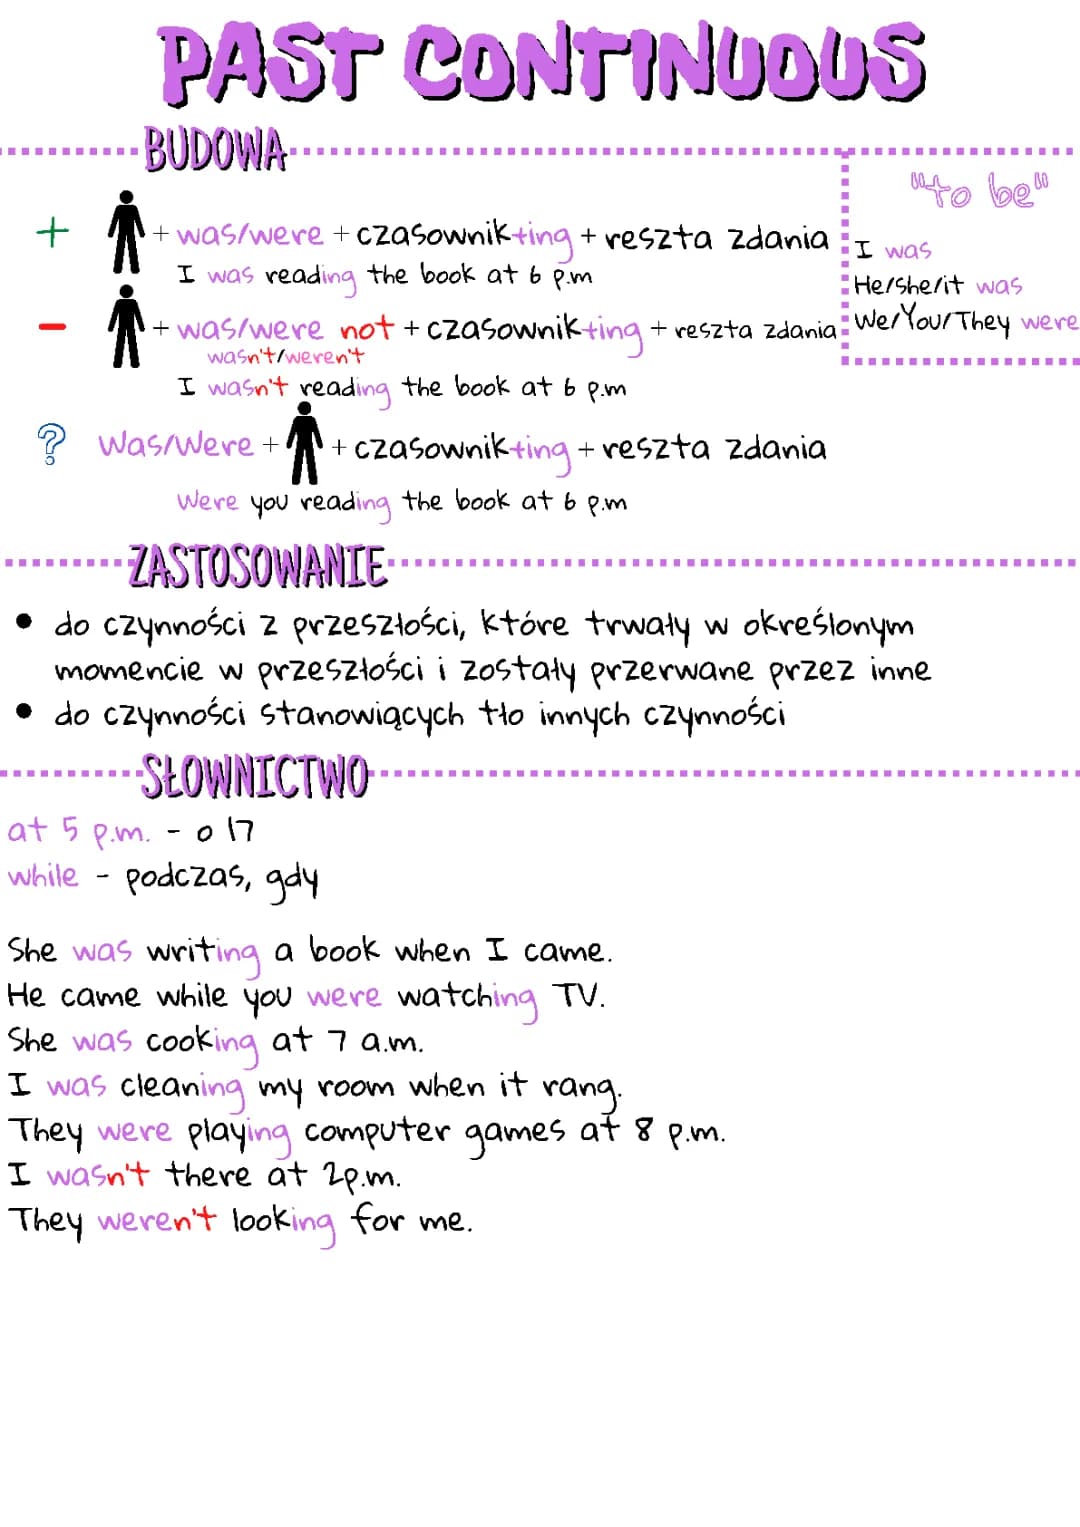 PAST CONTINUOUS
BUDOWA
"to be"
I was
He/she/it was
We/You/They were
+ + was/were + czasownik+ing + reszta zdania
I was reading the book at 6 p.m
- + was/were not + czasownik+ing + reszta zdania
wasn't/weren't
I wasn't reading the book at 6 p.m
? Was/Were + + czasownik+ing + reszta zdania
Were you reading the book at 6 p.m
ZASTOSOWANIE
• do czynności z przeszłości, które trwały w określonym
momencie w przeszłości i zostały przerwane przez inne
• do czynności stanowiących tło innych czynności
SŁOWNICTWO
at 5 p.m. - o 17
while - podczas, gdy
She was writing a book when I came.
He came while you were watching TV.
She was cooking at 7 a.m.
I was cleaning my room when it rang.
They were playing computer games at 8 p.m.
I wasn't there at 2p.m.
They weren't looking for me.